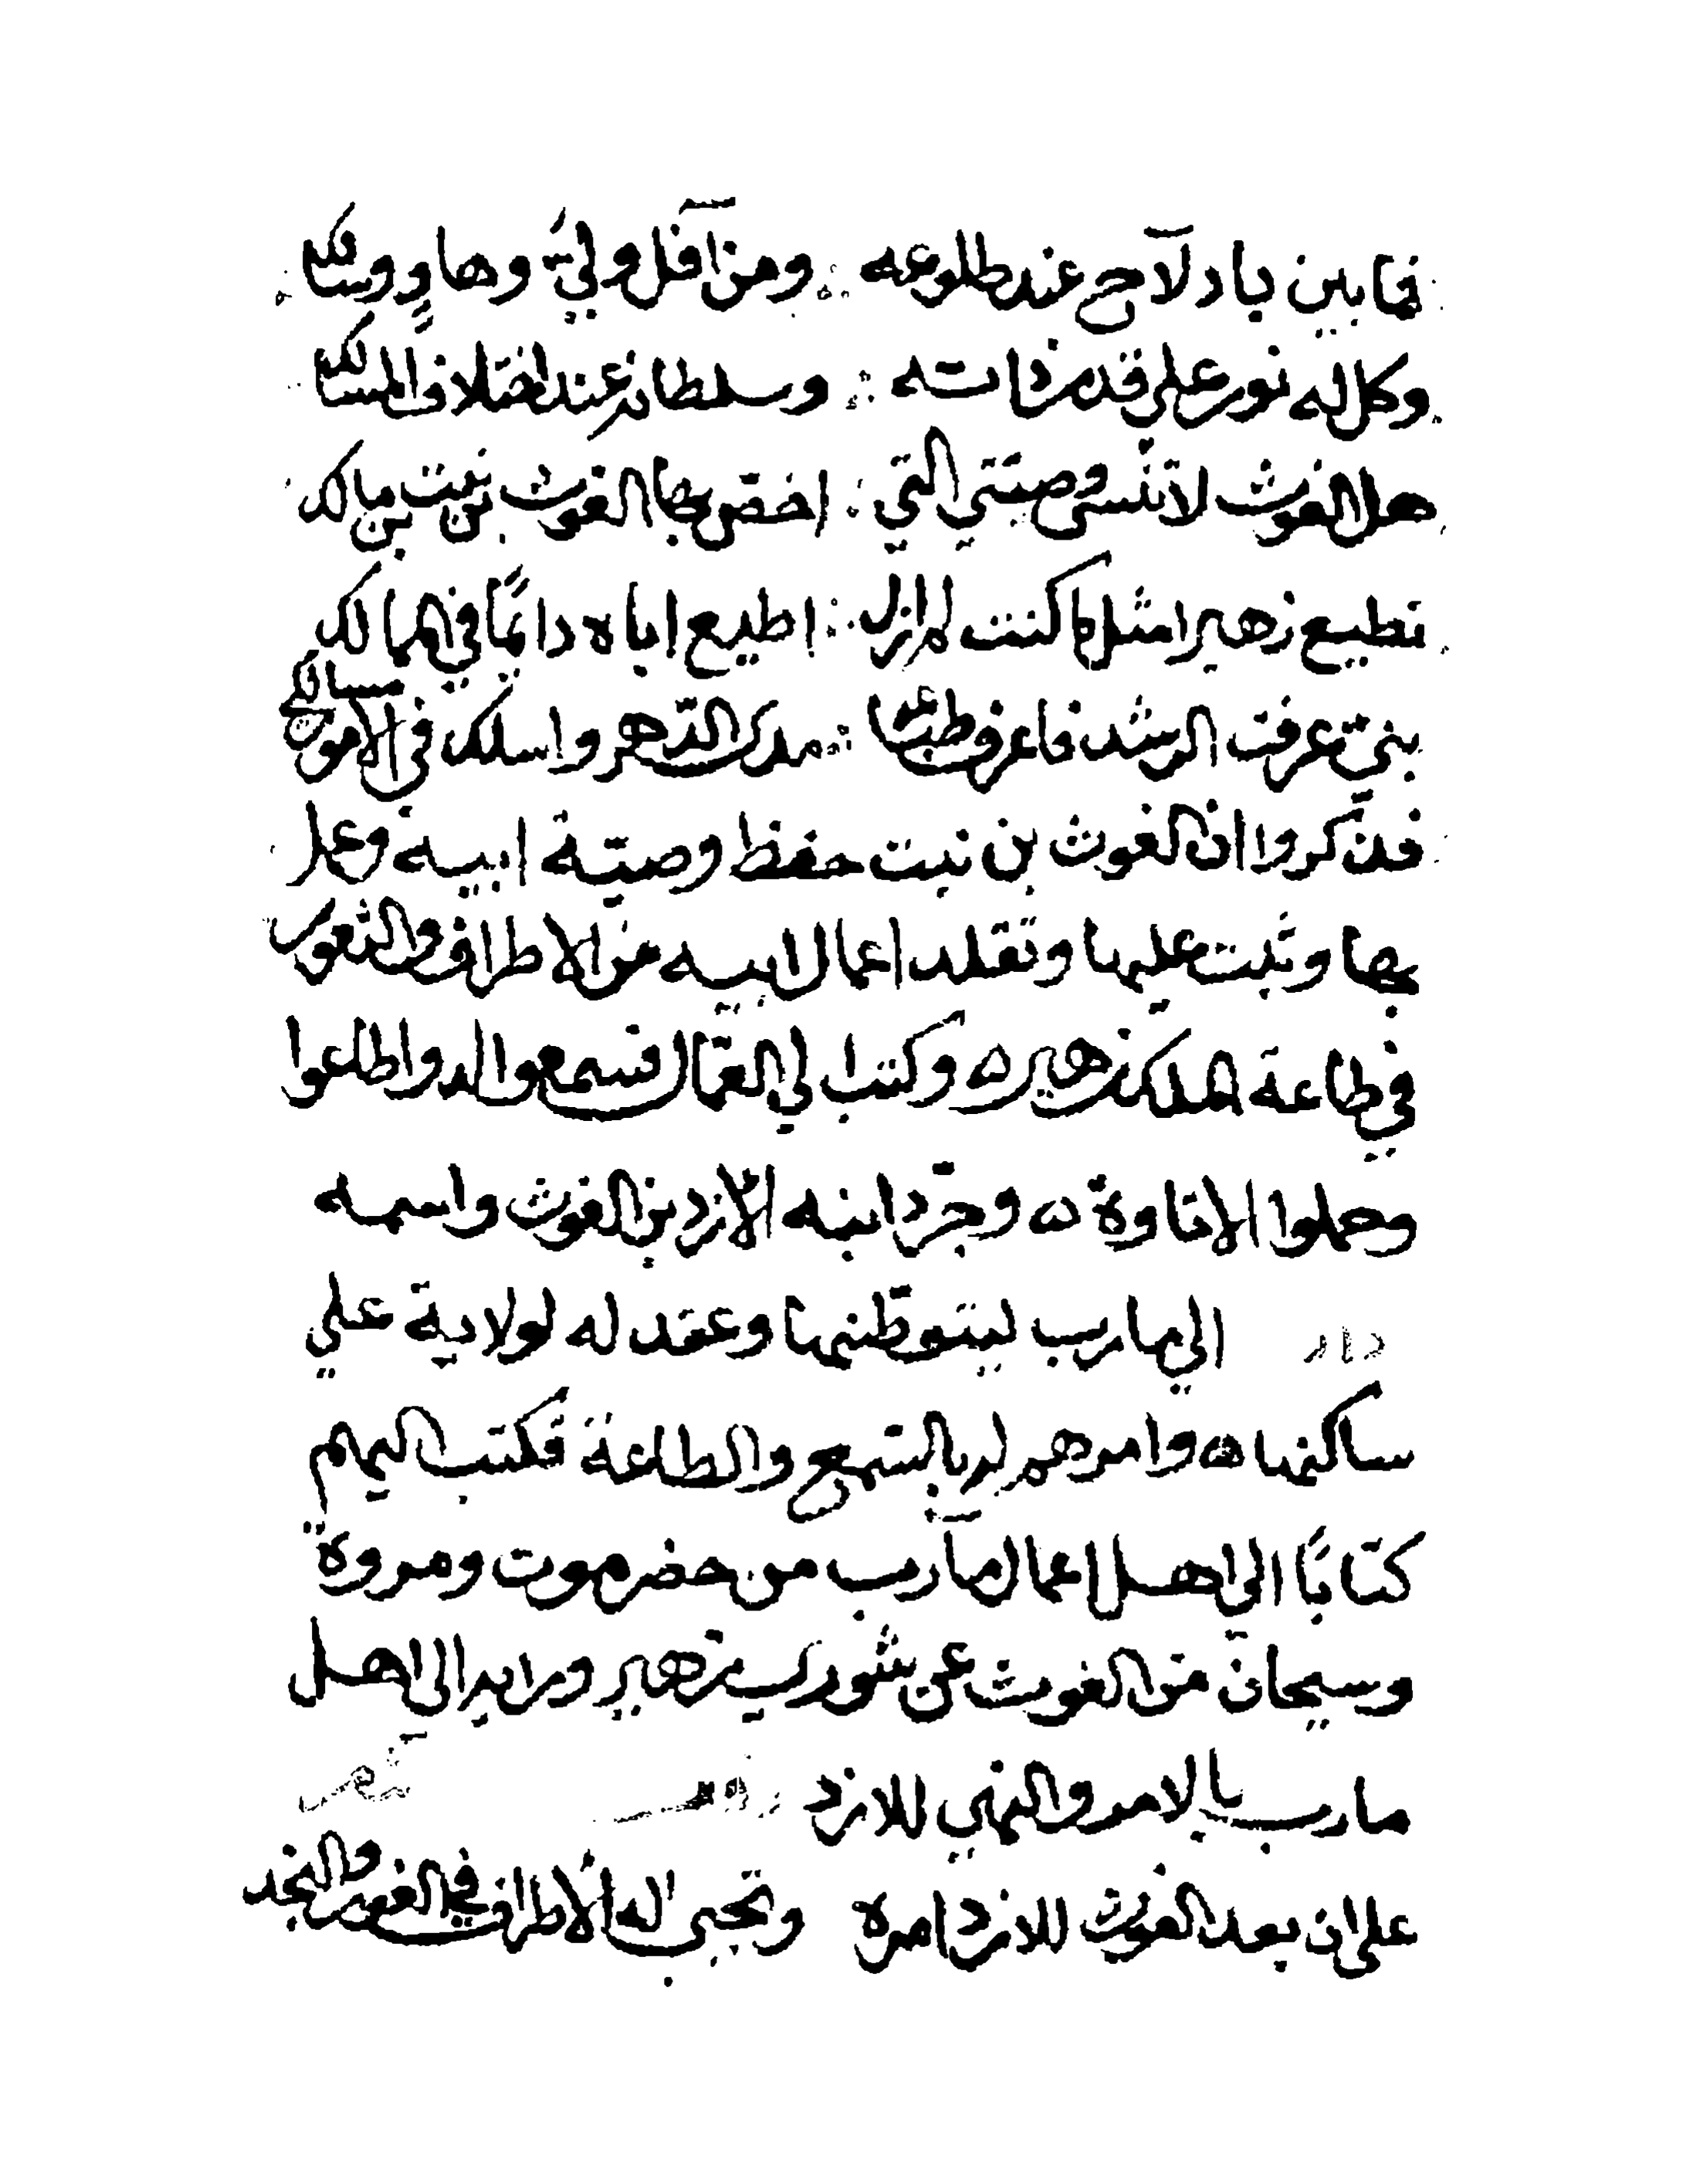 فما بين باد لاح عند طلوعه ومن آفل ولّي وهاوٍ ودالك
وكل له نور علي قدر ذاته وسلطانه عند اختلاف المسالك
هل الغوث لا تنسي وصيّتي التي اختص بها الغوث بن نبت بن مالك
تطيع زهيرا مثل ما كنت لم ازل اطيع اباه دائمًا في الممالك
بنيّ عرفت الرشد فاعرف مدي الدّهر واسلك في الامور مسالك
فذكروا ان الغوث بن نبت حفظ وصيّة ابيه وعمل
بها وثبت عليها وتقلد اعمال ابيه من الاطراف والثغور
في طاعة الملك زهير ه وكتب الي العمّال فسمعوا له واطاعوا
وحملوا الاتاوة ه وجرّد ابنه الازد بن الغوث واسمه
دار الي مارب ليتوطّنها وعقد له لولاية علي
ساكنها ه وامرهم له بالسّمع والطاعة فكتب اليهم
كتابًا الي اهل اعمال مآرب من حضرموت ومروة
وسيحان من الغوث عن شوري زهير ورايه الي اهل
مارب بالامر والنهي للازد
علي ان بعد الغوث للازد امره وتجبي له الاطراف في الغور والنجد